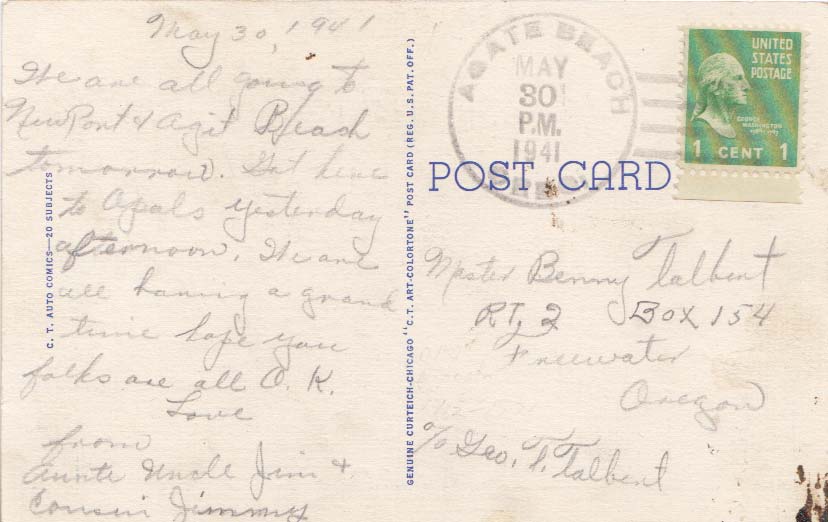 May 30, 1941
We are all going to
NewPort & Agit Beach
tomorrow. Got here
to Opals yesterday
afternoon. We are
all having a grand
time hope you
folks are all O.K.
Love
from
Aunte Uncle Jim &
Cousin Jimmy
C. T. AUTO COMICS—20 SUBJECTS
GENUINE CURTEICH-CHICAGO "C.T. ART-COLORTONE" POST CARD (REG. U.S. PAT. OFF.)
AGATE BEACH
MAY
30
P.M.
1941
OREG.
UNITED
STATES
POSTAGE
GEORGE
WASHINGTON
1789-1797
1 CENT 1
POST CARD
Master Benny Talbert
RT, 2 BOX 154
Freewater
Oregon
c/o Geo. T. Talbert